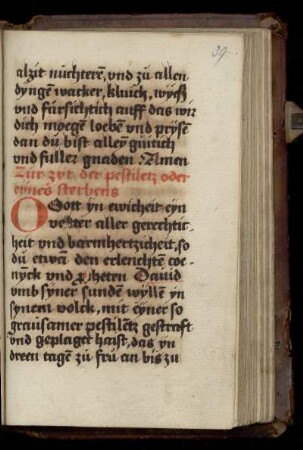 39.
alzit nüchteren, vnd zů allen
dyngen wacker, kluich, wyeß
vnd fürsichtich auff das wir
dich moegen loeben vnd pryse
dan dů bist alley gůitich
vnd fuller gnaden Amen
Zur zyt der pestiletz oder
eynes sterbens
O Gott yn ewicheit eyn
vetter aller gerechtic
heit vnd barmhertzicheit, so
dů etwan den erleuchten coe
nyck vnd heten Dauid
vmb syner sunden wyllen yn
synem volck, mit eyner so
grausamer pestiletz gestrafft
vnd geplaget haist, das yn
dreen tagen zů frů an bis zu